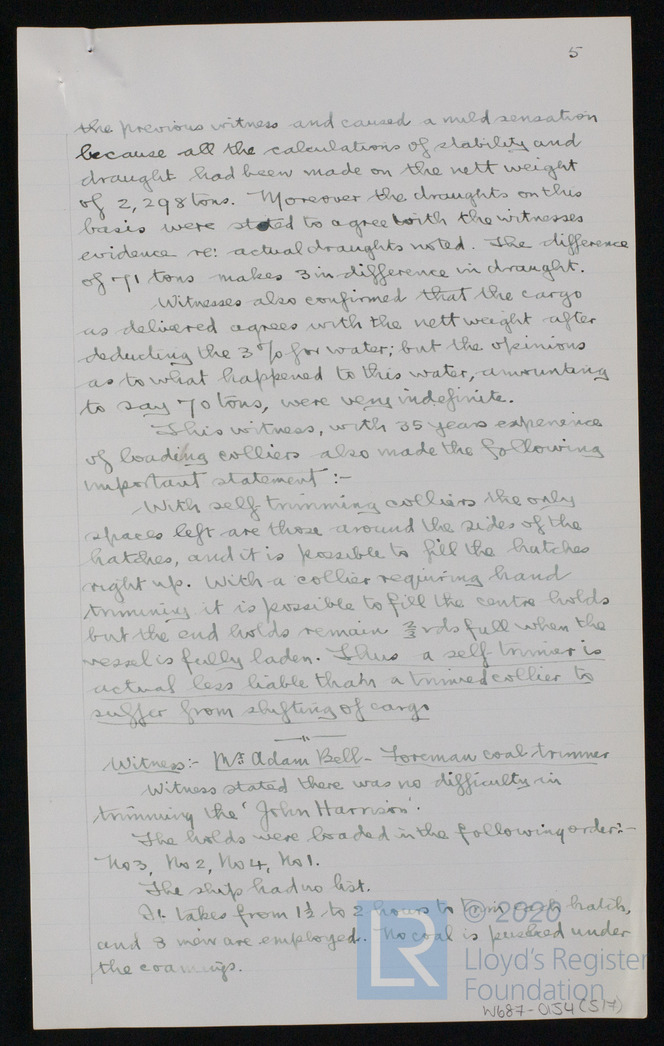 5
the previous witness and caused a mild sensation
because all the calculations of stability and
draught had been made on the nett weight
of 2,298 tons. Moreover the draughts on this
basis were stated to agree with the witnesses
evidence re: actual draughts noted. The difference
of 71 tons makes 3 in difference in draught.
Witnesses also confirmed that the cargo
as delivered agrees with the nett weight after
deducting the 3% for water; but the opinions
as to what happened to this water, amounting
to say 70 tons, were very indefinite.
This witness, with 35 years experience
of loading colliers also made the following
important statement :-
With self-trimming colliers the only
spaces left are those around the sides of the
hatches, and it is possible to fill the hatches
right up. With a collier requiring hand
trimming it is possible to fill the centre holds
but the end holds remain 2/3 rds full when the
vessel is fully laden. Thus a self-trimmer is
actual less liable than a trimmed collier to
suffer from shifting of cargo
Witness:- Mr Adam Bell - Foreman coal trimmer
Witness stated there was no difficulty in
trimming the 'John Harrison'.
The holds were loaded in the following order:-
No 3, No 2, No 4, No 1.
The ship had no list.
It takes from 1½ to 2 hours to trim each hatch,
and 3 men are employed. No coal is pushed under
the coamings.
© 2020
LR Lloyd's Register
Foundation
W687-0154 (5/7)